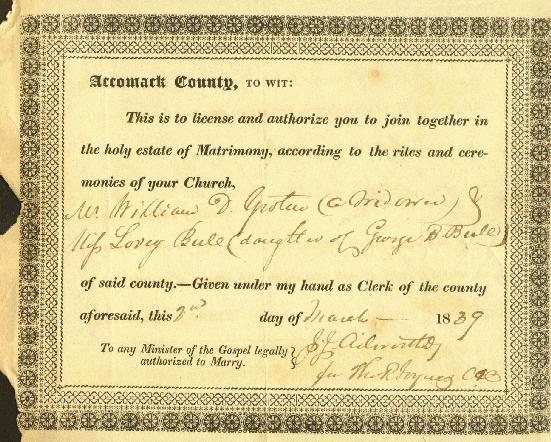 Accomack County, TO WIT:
This is to license and authorize you to join together in
the holy estate of Matrimony, according to the rites and cere-
monies of your Church,
Mr William D. (a Widower) &
Miss Lovey Bull (daughter of George B. Bull)
of said county.—Given under my hand as Clerk of the county
aforesaid, this 2nd day of March 1839
To any Minister of the Gospel legally
authorized to Marry.
J J Ailworth
for Tho R Joynes